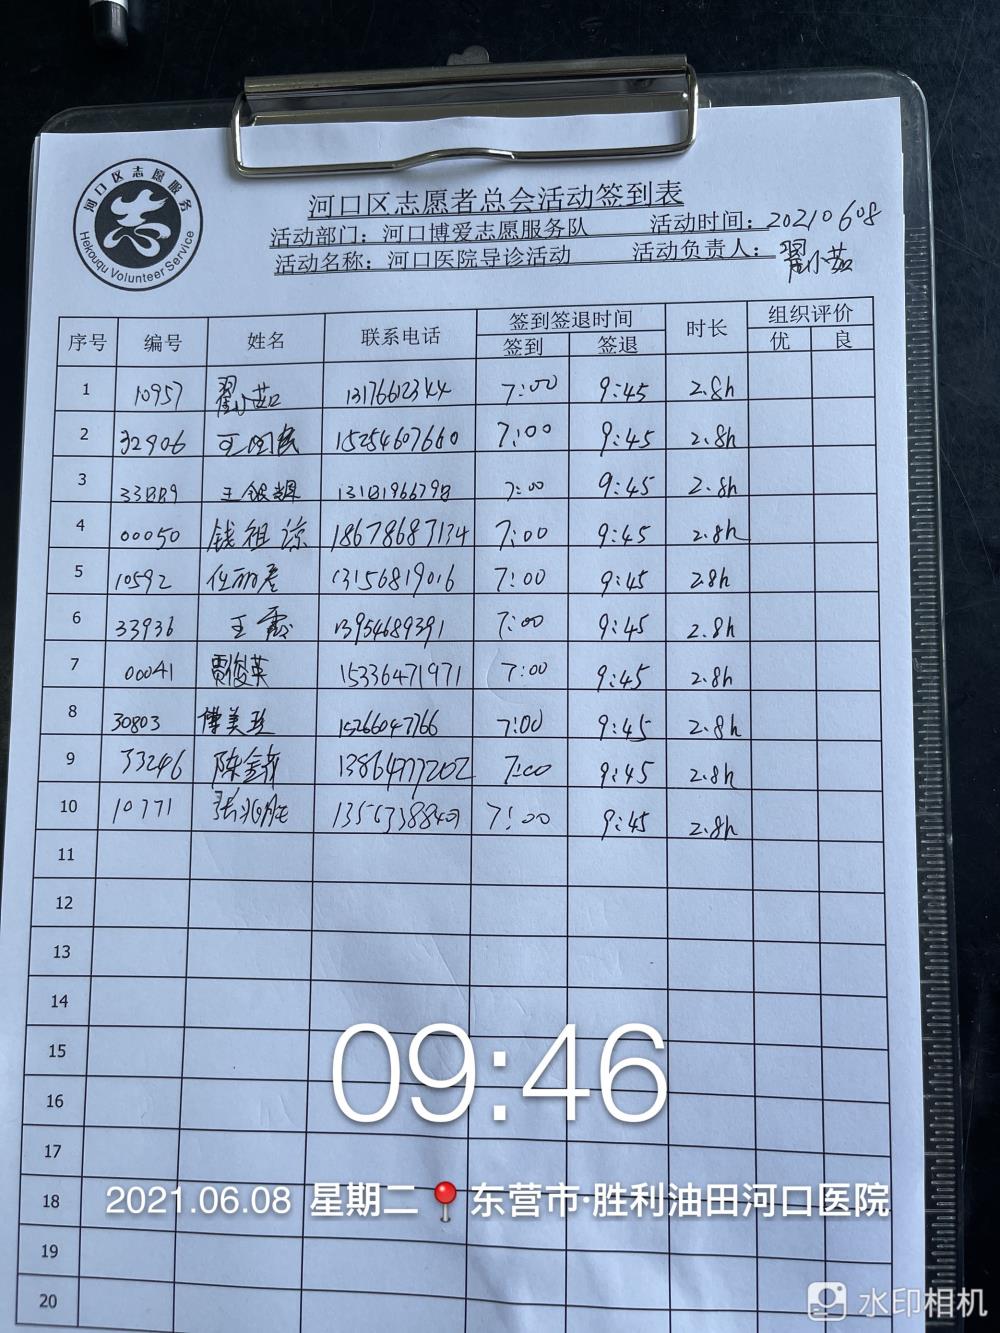 河口区志愿服务
Hekouqu Volunteer Service
河口区志愿者总会活动签到表
活动部门：河口博爱志愿服务队 活动时间：20210608
活动名称：河口医院导诊活动 活动负责人：翟小茹
序号 编号 姓名 联系电话 签到签退时间 时长 组织评价
签到 签退 优 良
1 10957 翟小茹 13176612344 7:00 9:45 2.8h
2 32906 15254607660 7:00 9:45 2.8h
3 33889 王银 13181966798 7:00 9:45 2.8h
4 00050 钱祖谅 18678687134 7:00 9:45 2.8h
5 10592 任丽彦 13156819016 7:00 9:45 2.8h
6 33936 王霞 13954689391 7:00 9:45 2.8h
7 00041 贾俊英 15336471971 7:00 9:45 2.8h
8 30803 美玲 15266047766 7:00 9:45 2.8h
9 33246 陈金 13864777202 7:00 9:45 2.8h
10 10771 张兆胜 7:00 9:45 2.8h
11
12
13
14
15
16
17
18
19
20
09:46
2021.06.08 星期二 东营市·胜利油田河口医院
水印相机